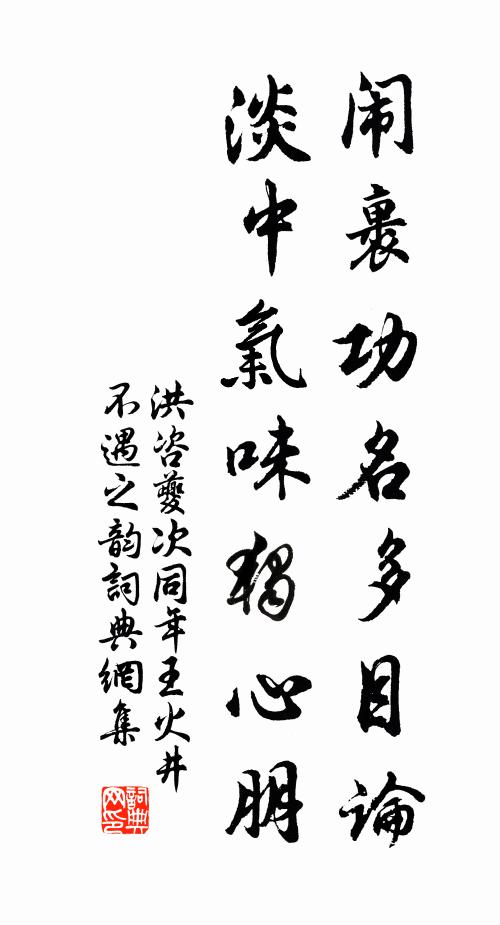 闹裏功名多目論
淡中氣味獨心朋
洪咨夔次同年王火井
不遇之韵詞典網集
詞典網印